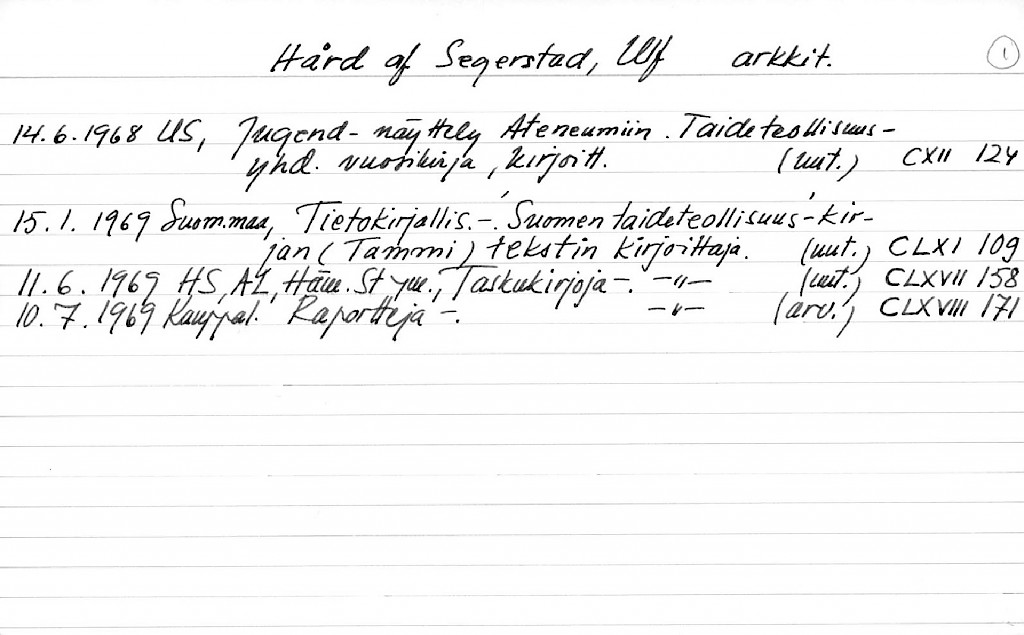 Hård af Segerstad, Ulf arkkit. 1
14.6.1968 US, Jugend-näyttely Ateneumiin. Taideteollisuus-
yhd. vuosikirja, kirjoitt. (uut.) CXII 124
15.1.1969 Suom.maa, Tietokirjallis.-. 'Suomen taideteollisuus'-kir-
jan (Tammi) tekstin kirjoittaja. (uut.) CLXI 109
11.6.1969 HS, AL, Häm.St ym., Taskukirjoja-. -"- (uut.) CLXVII 158
10.7.1969 Kauppal. Raportteja-. -"- (arv.) CLXVIII 171